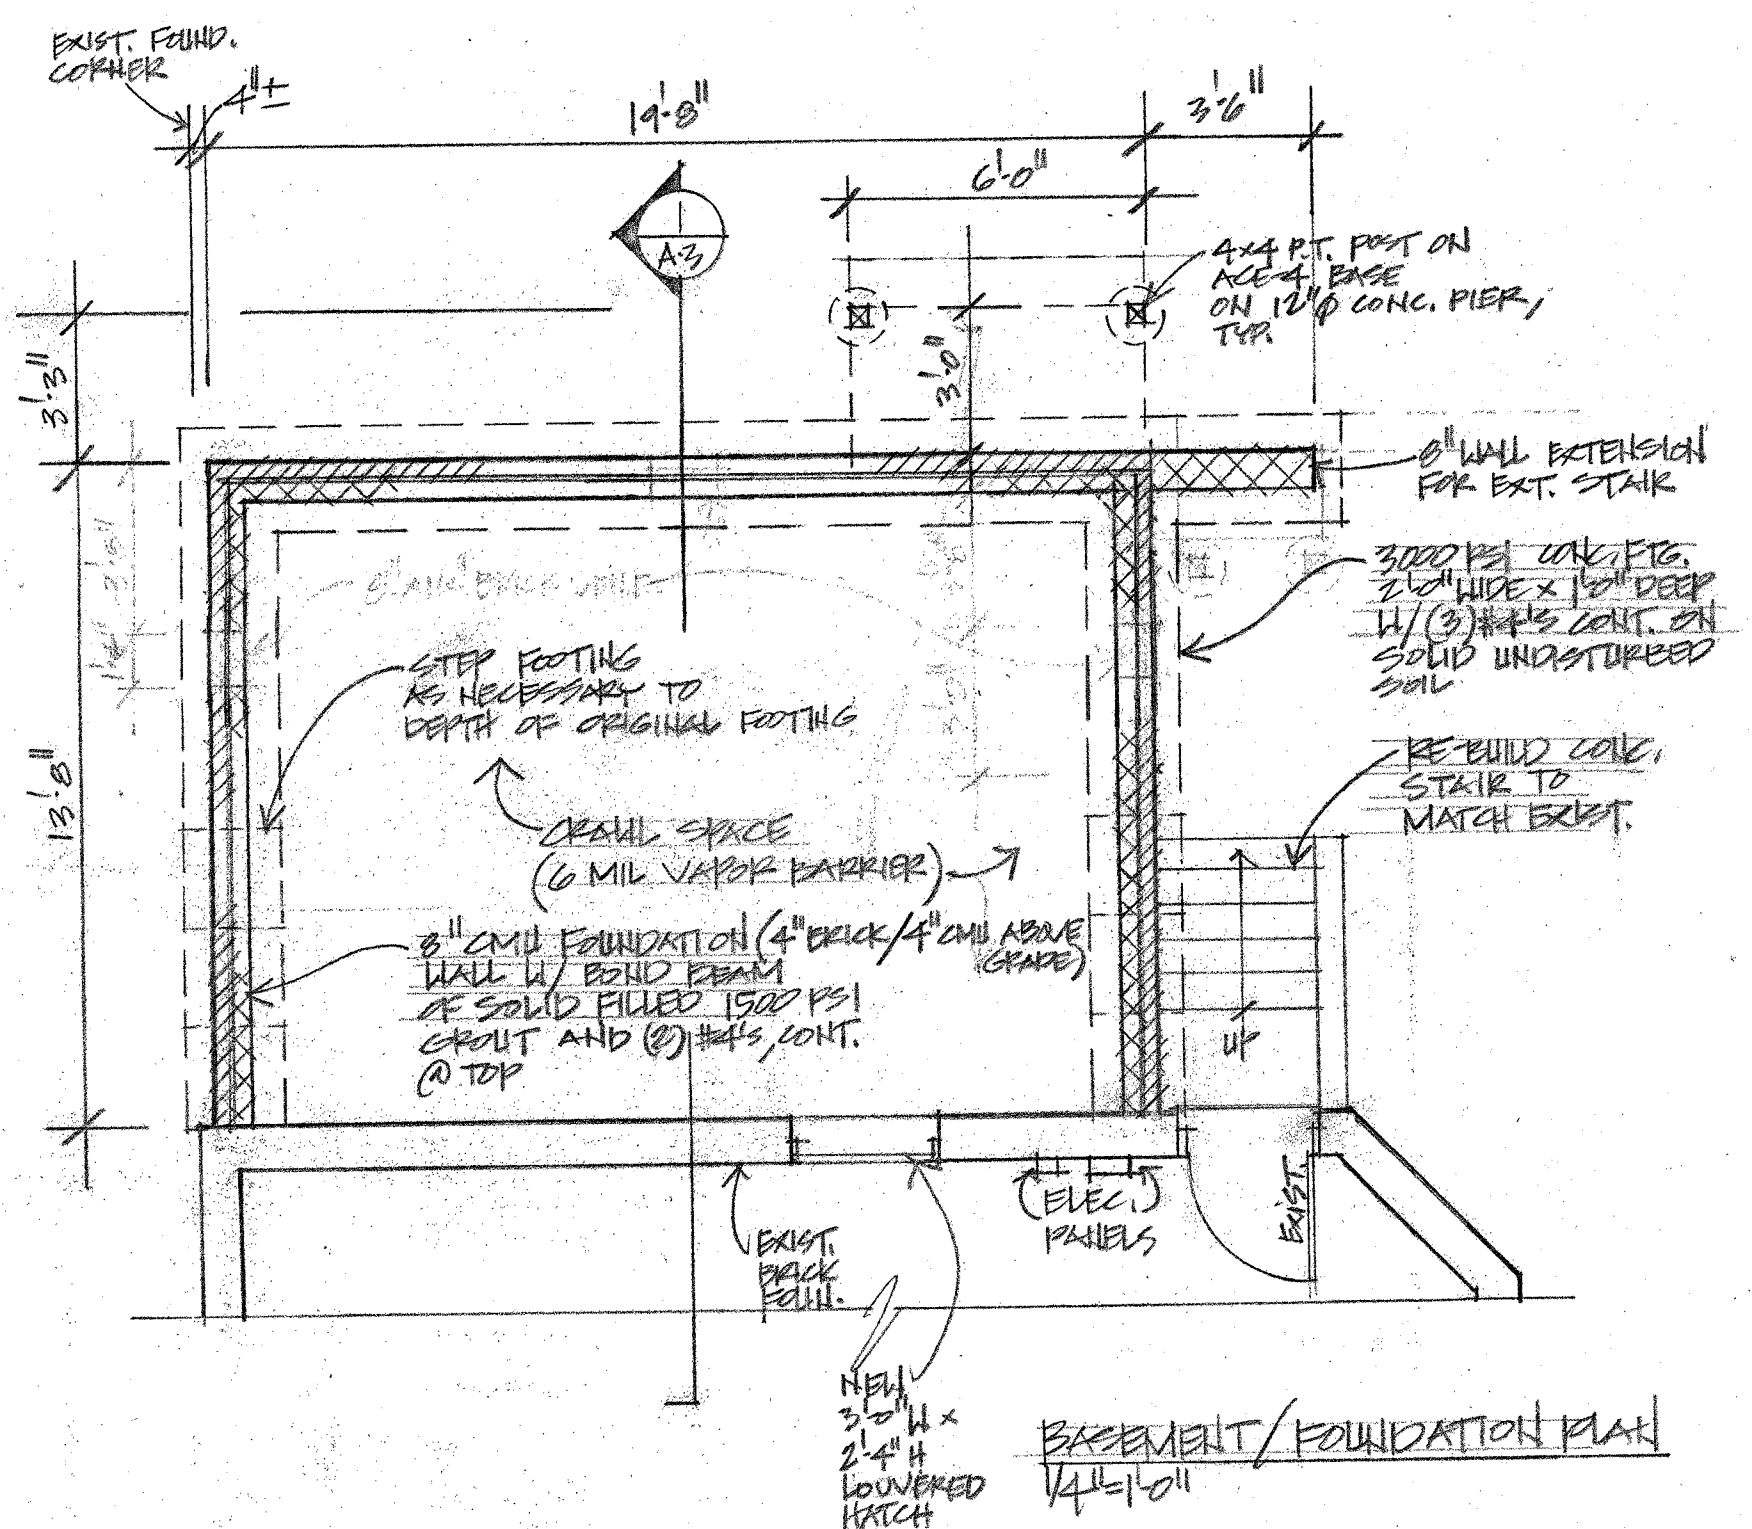 EXIST. FOUND.
CORNER
4"±
19'-8"
3'-6"
6'-0"
A-3
4x4 P.T. POST ON
ACE-4 BASE
ON 12"φ CONC. PIER,
TYP.
3'-3"
3'-0"
8" WALL EXTENSION
FOR EXT. STAIR
3000 PSI CONC. FTG.
2'-0" WIDE x 1'-0" DEEP
W/ (3) #4'S CONT. ON
SOLID UNDISTURBED
SOIL
STEP FOOTING
AS NECESSARY TO
DEPTH OF ORIGINAL FOOTING
RE-BUILD CONC.
STAIR TO
MATCH EXIST.
13'-8"
CRAWL SPACE
(6 MIL VAPOR BARRIER)
8" CMU FOUNDATION (4" BRICK/4" CMU ABOVE
GRADE)
WALL W/ BOND BEAM
OF SOLID FILLED 1500 PSI
GROUT AND (2) #4'S, CONT.
@ TOP
UP
(ELEC.)
PANELS
EXIST.
EXIST.
BRICK
FOUN.
NEW
3'-0" W x
2'-4" H
LOUVERED
HATCH
BASEMENT/FOUNDATION PLAN
1/4"=1'-0"